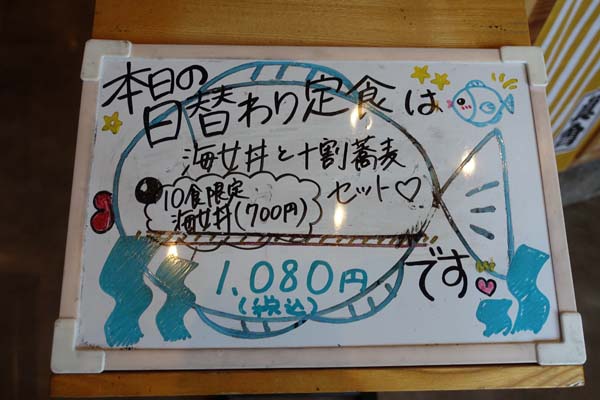 本日の
日替わり定食は
海女丼と十割蕎麦
セット♡
10食限定
海女丼(700円)
1,080円
(税込)
です